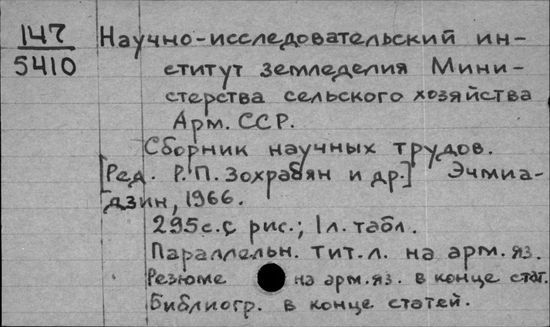 147
5410
Научно-исследовательский ин-
ститут земледелия Мини-
стерства сельского хозяйства
Арм. ССР.
Сборник научных трудов.
[Ред. Р.П. Зохрабян и др.] Эчмиа-
дзин, 1966.
295 с. с рис.; 1 л. табл.
Параллельн. тит. л. на арм. яз.
Резюме на арм. яз. в конце стат.
Библиогр. в конце статей.